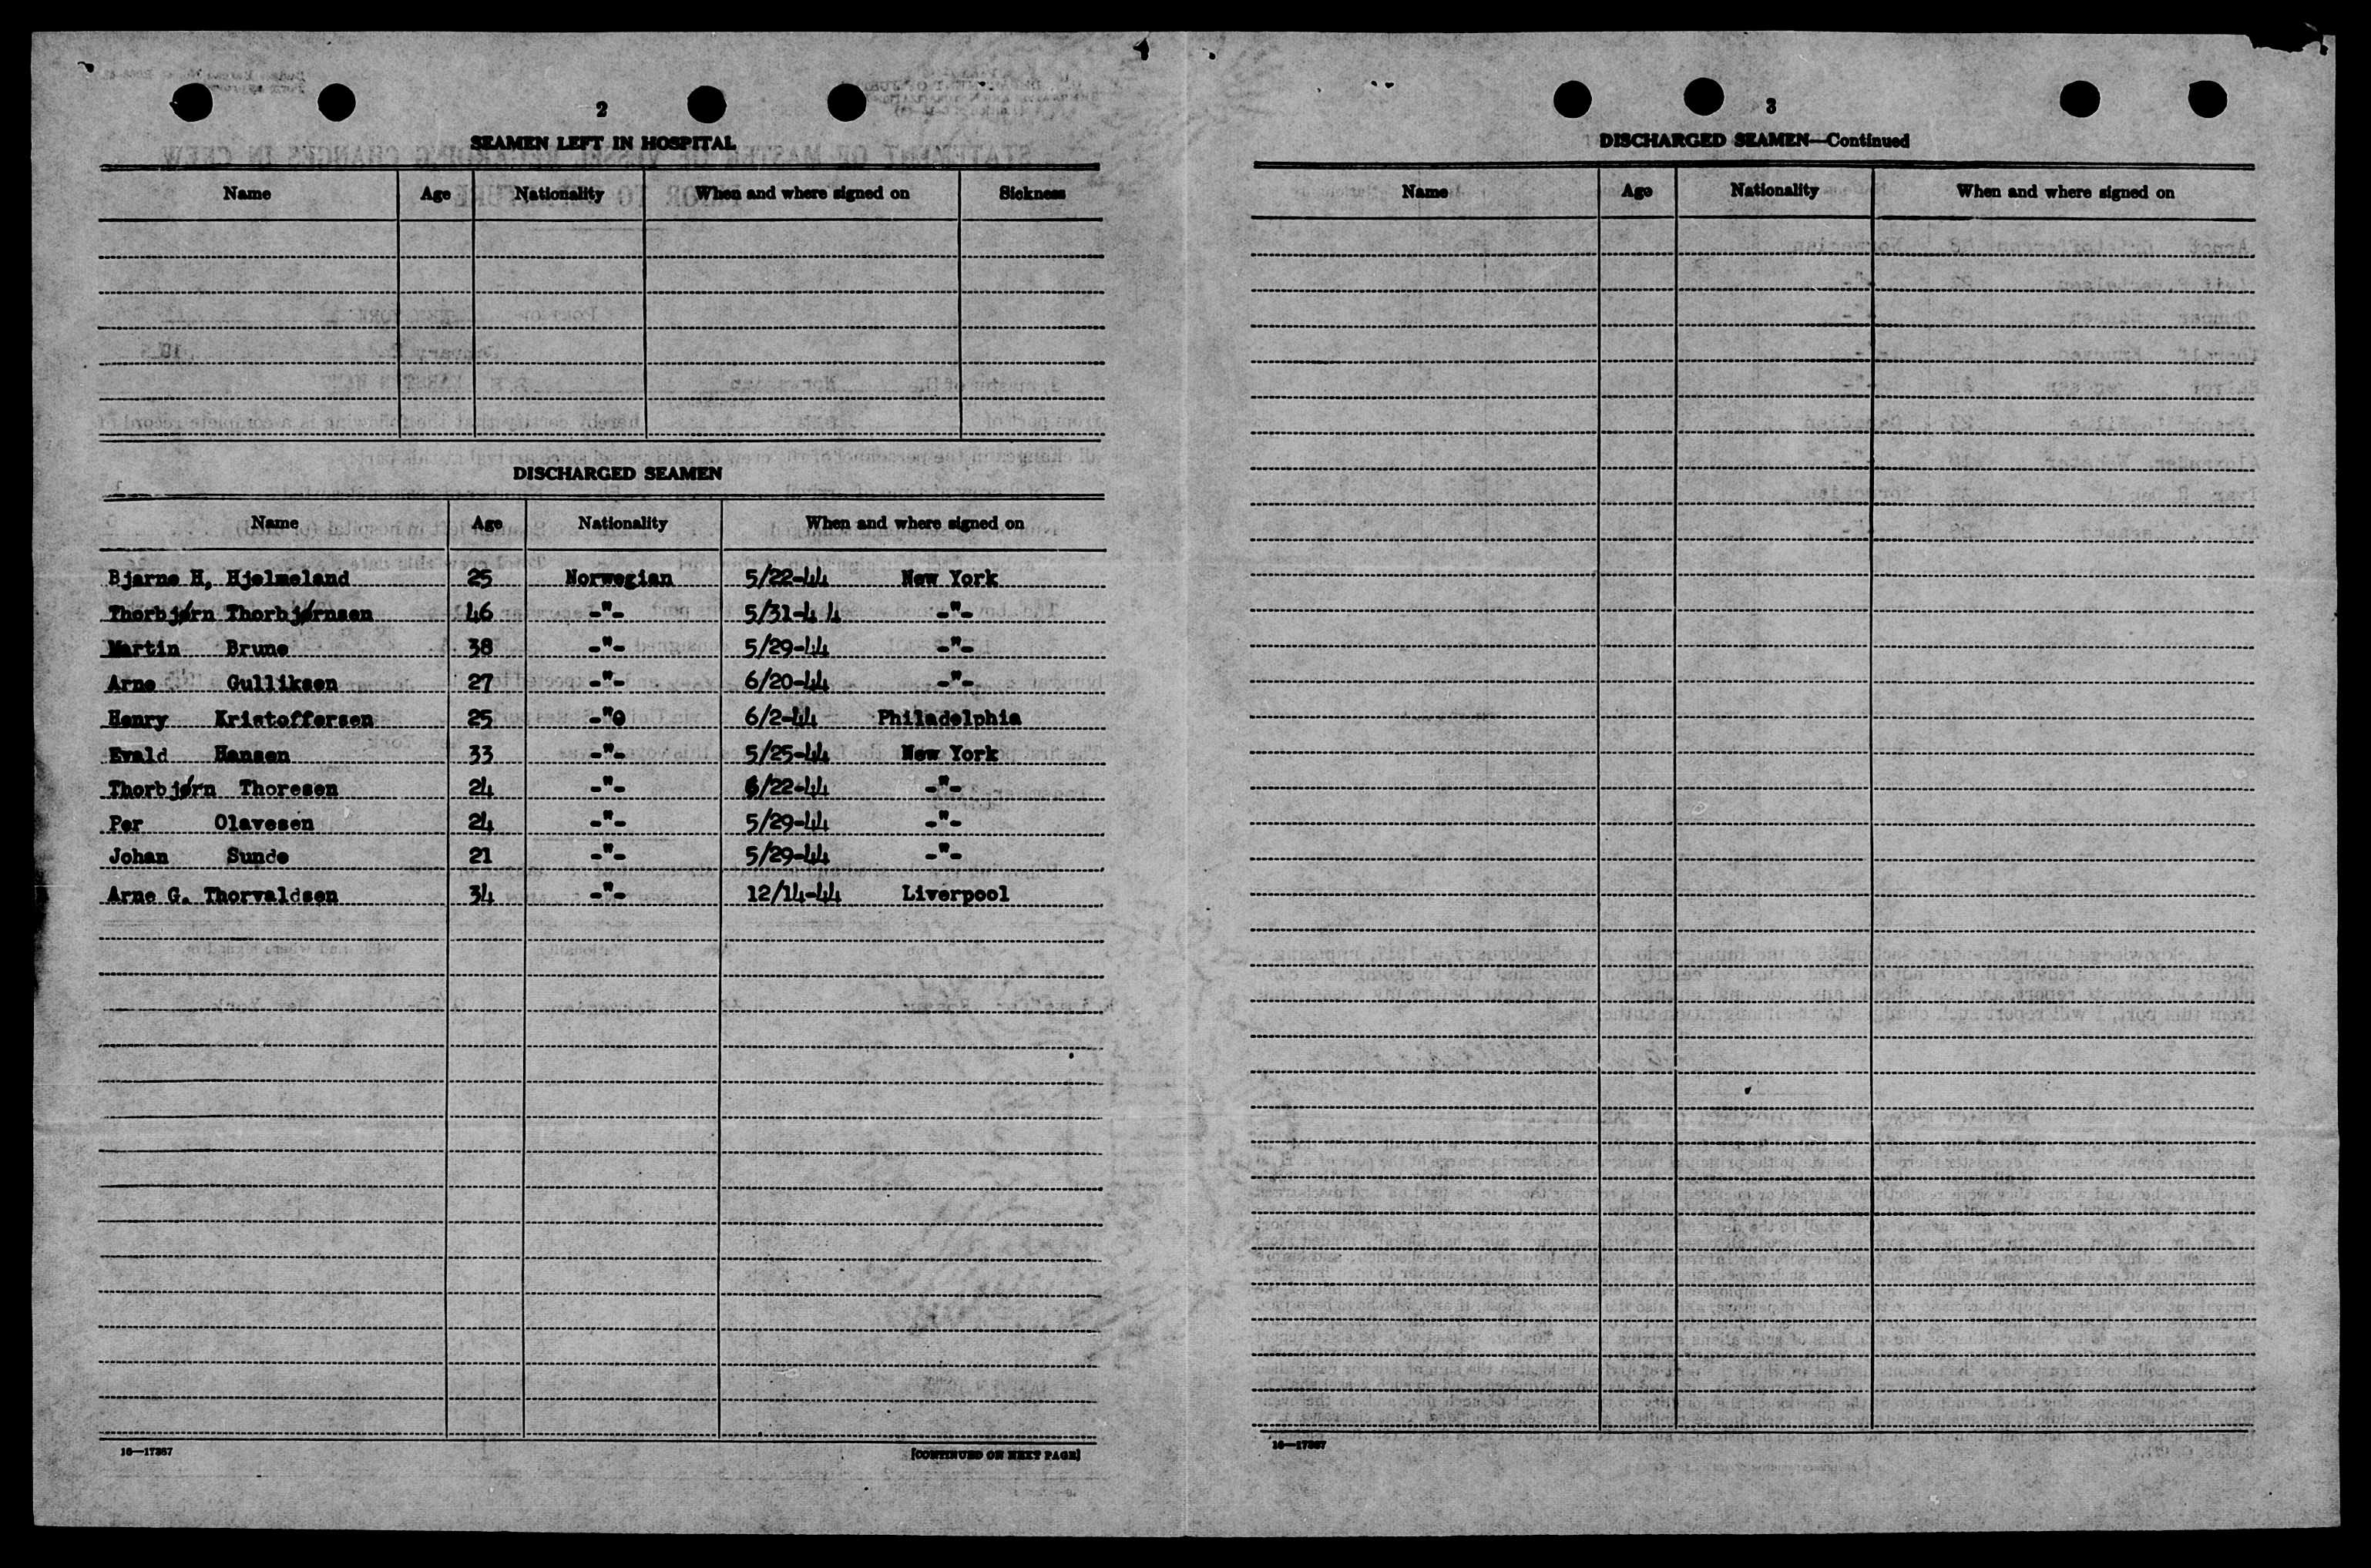 2
SEAMEN LEFT IN HOSPITAL
Name Age Nationality When and where signed on Sickness
DISCHARGED SEAMEN
Name Age Nationality When and where signed on
Bjarne H, Hjelmeland 25 Norwegian 5/22-44 New York
Thorbjørn Thorbjørnsen 46 -"- 5/31-4 4 -"-
Martin Brune 38 -"- 5/29-44 -"-
Arne Gulliksen 27 -"- 6/20-44 -"-
Henry Kristoffersen 25 -"0 6/2-44 Philadelphia
Evald Hansen 33 -"- 5/25-44 New York
Thorbjørn Thoresen 24 -"- 6/22-44 -"-
Per Olavesen 24 -"- 5/29-44 -"-
Johan Sunde 21 -"- 5/29-44 -"-
Arne G. Thorvaldsen 34 -"- 12/14-44 Liverpool
16—17367
[CONTINUED ON NEXT PAGE]
3
DISCHARGED SEAMEN—Continued
Name Age Nationality When and where signed on
16—17367